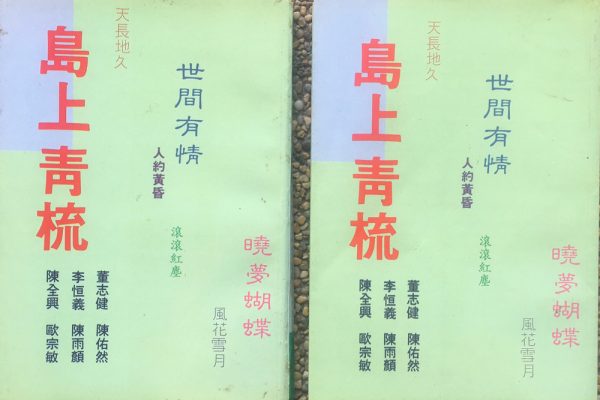 天長地久
島上青梳
世間有情
人約黃昏
滾滾紅塵
曉夢蝴蝶
風花雪月
董志健 陳佑然
李恒義 陳雨顏
陳全興 歐宗敏
天長地久
島上青梳
世間有情
人約黃昏
滾滾紅塵
曉夢蝴蝶
風花雪月
董志健 陳佑然
李恒義 陳雨顏
陳全興 歐宗敏